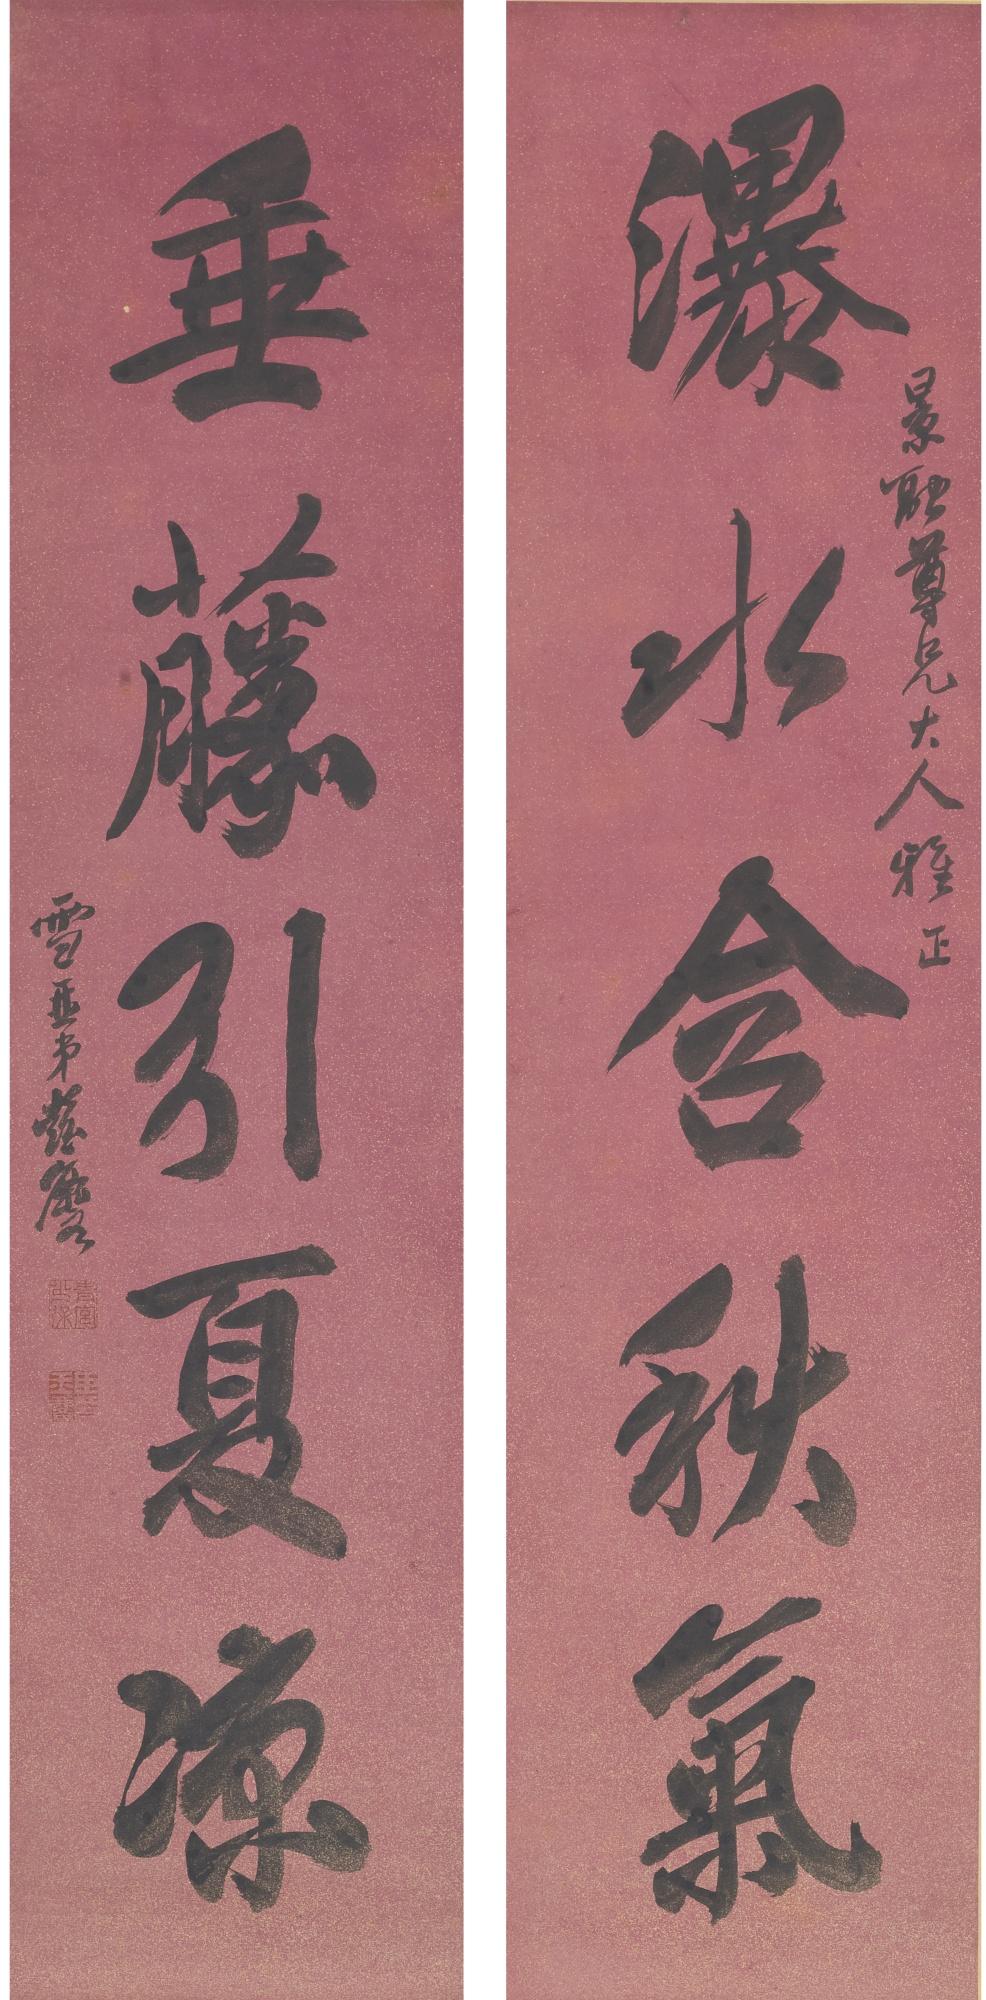 瀑水含秋氣
景融尊兄大人雅正
垂藤引夏涼
雪亚弟